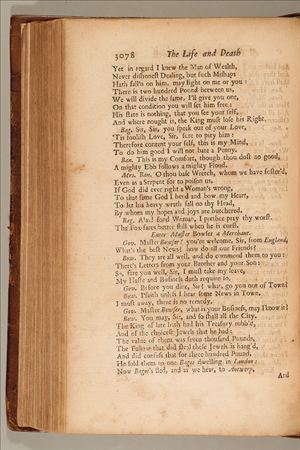 3078 The Life and Death
Yet in regard I knew the Man of Wealth,
Never dishonest Dealing, but such Mishaps
Hath fall'n on him, may light on me or you:
There is two hundred Pound between us,
We will divide the same, I'll give you one,
On that condition you will set him free:
His state is nothing, that you see your self,
And where nought is, the King must lose his Right.
Bag. Sir, Sir, you speak out of your Love,
'Tis foolish Love, Sir, sure to pity him:
Therefore content your self, this is my Mind,
To do him good I will not bate a Penny.
Ban. This is my Comfort, though thou dost no good,
A mighty Ebb follows a mighty Flood.
Mrs. Ban. O thou base Wretch, whom we have foster'd,
Even as a Serpent for to poison us,
If God did ever right a Woman's wrong,
To that same God I bend and bow my Heart,
To let his heavy wrath fall on thy Head,
By whom my hopes and joys are butchered.
Bag. Alas! fond Woman, I prethee pray thy worst,
The Fox fares better still when he is curst.
Enter Master Bowser a Merchant.
Gov. Master Bowser! you're welcome, Sir, from England,
What's the best News? how do all our Friends?
Bow. They are all well, and do commend them to you:
There's Letters from your Brother and your Son:
So, fare you well, Sir, I must take my leave,
My Haste and Business doth require so.
Gov. Before you dine, Sir? what, go you out of Town?
Bow. I'faith unless I hear some News in Town,
I must away, there is no remedy.
Gov. Master Bowser, what is your Business, may I know it?
Bow. You may, Sir, and so shall all the City.
The King of late hath had his Treasury robb'd,
And of the choicest Jewels that he had:
The value of them was seven thousand Pounds,
The Fellow that did steal these Jewels is hang'd,
And did confess that for three hundred Pound,
He sold them to one Bagot dwelling in London:
Now Bagot's fled, and as we hear, to Antwerp,
And